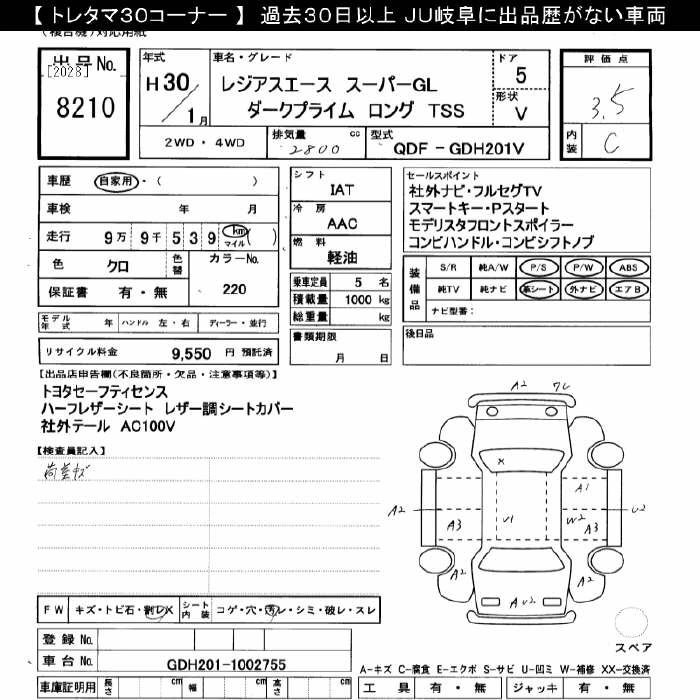 【 トレタマ30コーナー 】 過去30日以上 JU岐阜に出品歴がない車両
(複合機)対応用紙
出品No.
[2028]
8210
年式
H30/1月
車名・グレード
レジアスエース スーパーGL
ダークプライム ロング TSS
ドア
5
形状
V
2WD・4WD
排気量 cc
2800
型式
QDF-GDH201V
評価点
3.5
内装
C
車歴 自家用・( )
車検 年 月
走行 9万 9千 5 3 9 km マイル ( )
色 クロ
色替
カラーNo.
220
保証書 有・無
シフト
IAT
冷房
AAC
燃料
軽油
乗車定員 5 名
積載量 1000 kg
総重量 kg
セールスポイント
社外ナビ・フルセグTV
スマートキー・Pスタート
モデリスタフロントスポイラー
コンビハンドル・コンビシフトノブ
装備品
S/R 純A/W P/S P/W ABS
純TV 純ナビ 革シート 外ナビ エアB
ナビ型番:
モデル年式 年 ハンドル 左・右 ディーラー・並行
リサイクル料金 9,550 円 預託済
書類期限
月 日
後日品
【出品店申告欄(不良箇所・欠品・注意事項等)】
トヨタセーフティセンス
ハーフレザーシート レザー調シートカバー
社外テール AC100V
【検査員記入】
荷室キズ
A2
A1
A2
A3
U1
W2
A3
U2
A2
FW キズ・トビ石・割レX
シート内装 コゲ・穴・汚レ・シミ・破レ・スレ
登録No.
車台No. GDH201-1002755
スペア
A-キズ C-腐食 E-エクボ S-サビ U-凹ミ W-補修 XX-交換済
車庫証明用 長さ cm 幅 cm 高さ cm
工具 有・無 ジャッキ 有・無